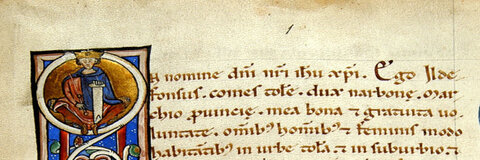 n nomine dñi nr̃i ihu xpi. Ego Ilde
fonsus. comes tolẽ. dux narbonę. mar
chio prouincię. mea bona & gratuita uo
luntate. om̃ibꝰ hoм̃ibꝰ & feminis modo
habitãtibꝰ in urbe tolã & in suburbio &